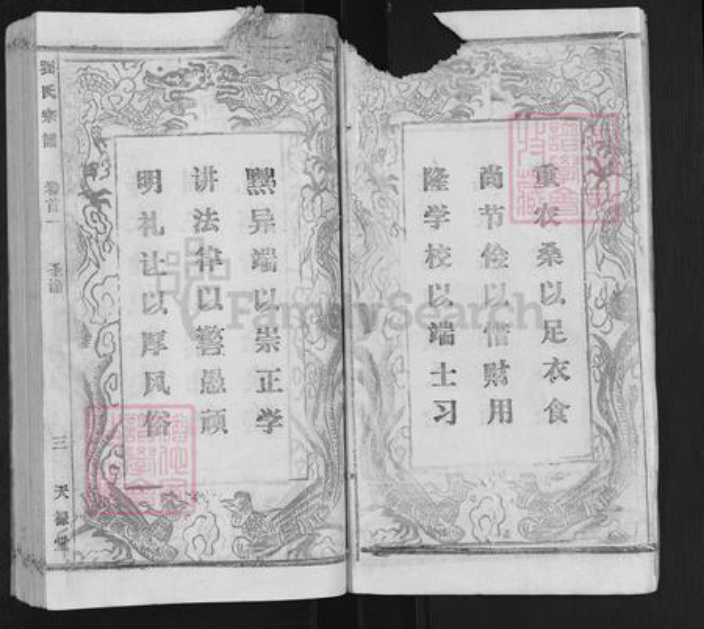 重农桑以足衣食
尚节俭以惜财用
隆学校以端士习
黜异端以崇正学
讲法律以警愚顽
明礼让以厚风俗
刘氏宗谱
卷首一
圣谕
三
天禄堂
FamilySearch